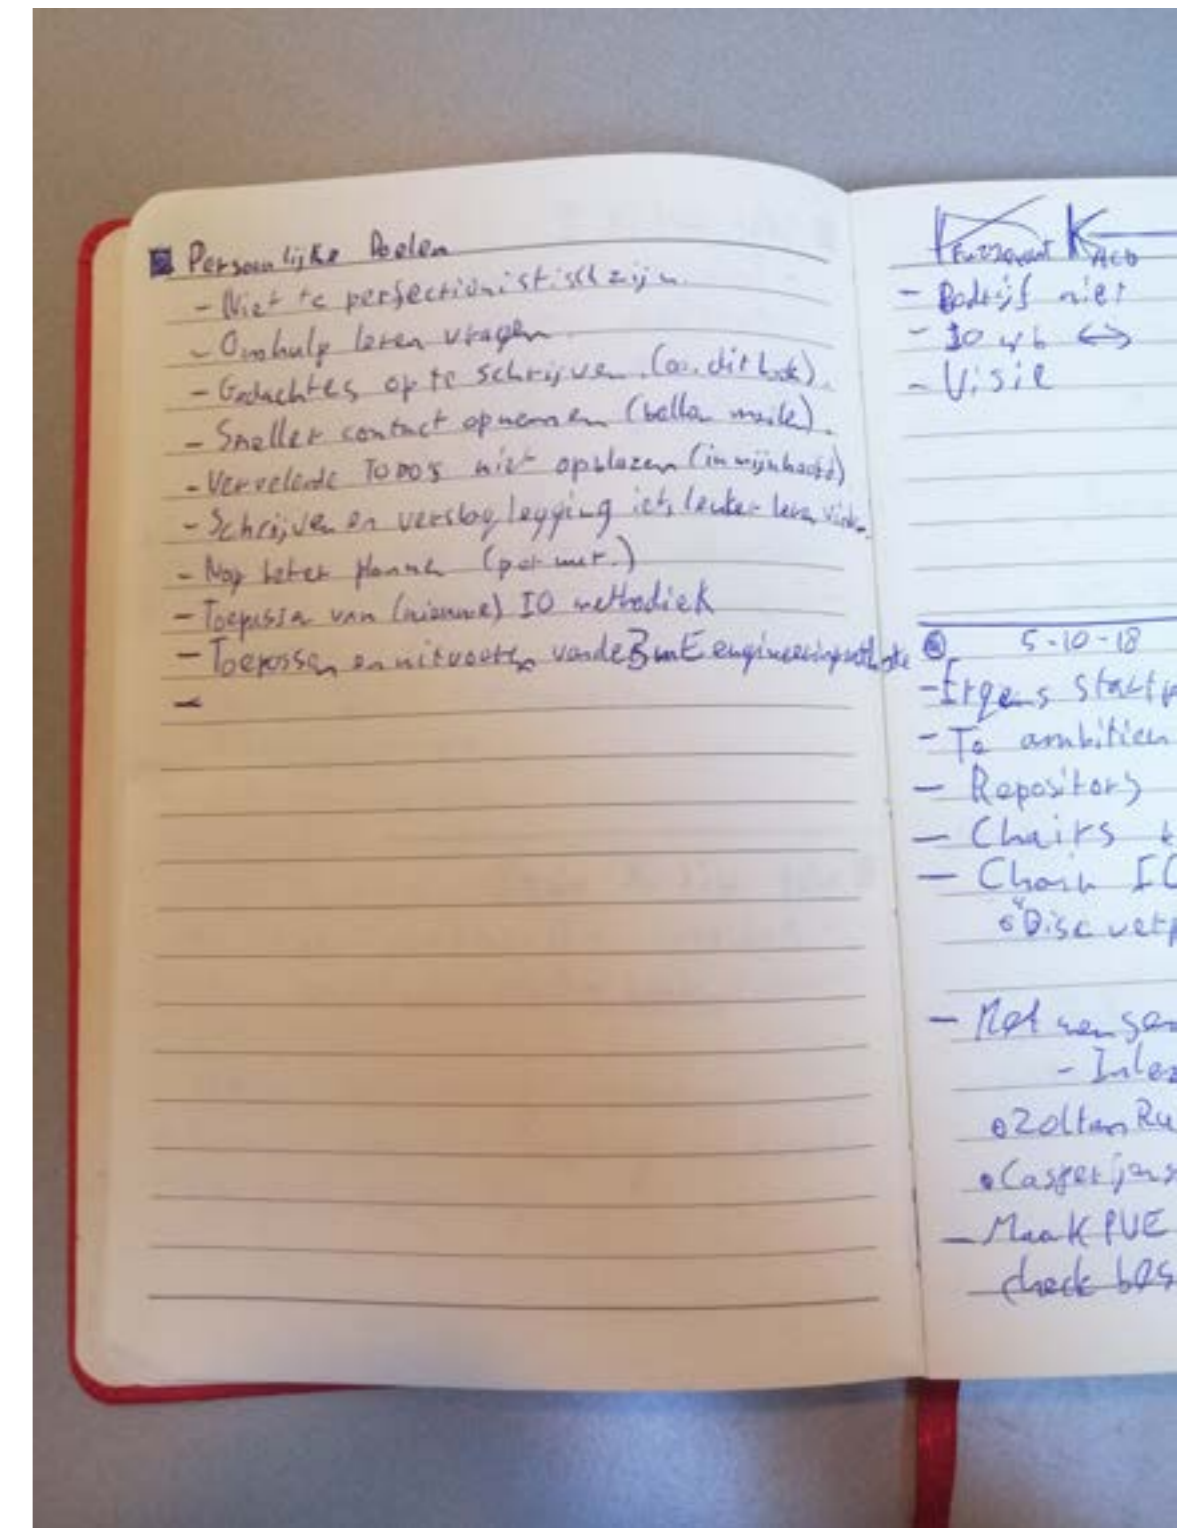 Persoonlijke Doelen
- Niet te perfectionistisch zijn.
- Om hulp leren vragen.
- Gedachtes op te schrijven. (o.a. dit boek).
- Sneller contact opnemen (bellen maile).
- Vervelende TODO's niet opblazen (in mijn hoofd)
- Schrijven en verslaglegging iets leuker leren vinden.
- Nog beter plannen (
- Toepassen van (nieuwe) IO methodiek
- Toepassen en uitvoeren van de engineering
-
- Bedrijf niet
- 10 ↔
- Visie
5-10-18
- Ergens start
- Te ambitieu
- Repository
- Chairs
- Chair IO
Disc verp
- Met
- Inlez
Zoltan Ru
Casper jans
- Maak PVE
check bes